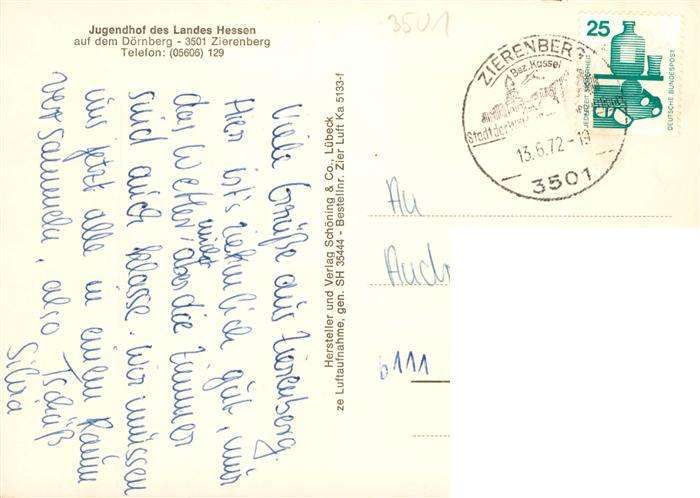 Jugendhof des Landes Hessen
auf dem Dörnberg - 3501 Zierenberg
Telefon: (05606) 129
Viele Grüße aus Zierenberg.
Hier ist's ziemlich gut, nur
das Wetter nicht, aber die Zimmer
sind auch klasse. Wir müssen
uns jetzt alle in einem Raum
versammeln, also Tschüß
Silvia
Hersteller und Verlag Schöning & Co., Lübeck
ze Luftaufnahme, gen. SH 35444 - Bestellnr. Zier Luft Ka 5133-f
3501
ZIERENBERG
Bez. Kassel
13.6.72-19
3501
25
DEUTSCHE BUNDESPOST
An
6111